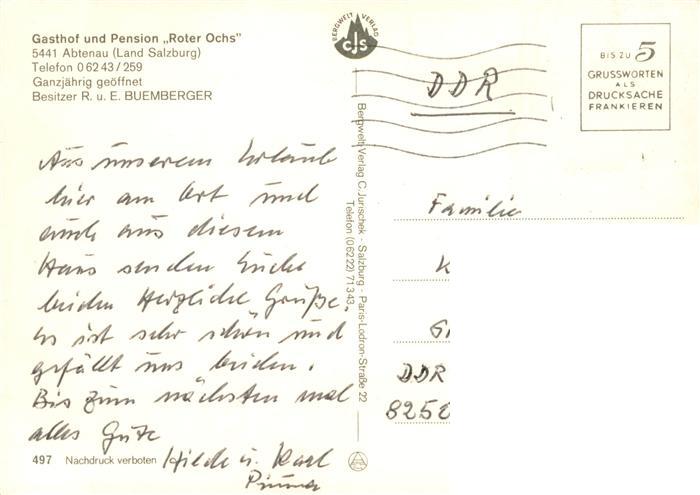 Gasthof und Pension „Roter Ochs"
5441 Abtenau (Land Salzburg)
Telefon 0 62 43 / 259
Ganzjährig geöffnet
Besitzer R. u. E. BUEMBERGER
Aus unserem Urlaub
hier am Ort und
auch aus diesem
Haus senden Euch
beiden Herzliche Grüße.
Es ist sehr schön und
gefällt uns beiden.
Bis zum nächsten mal
alles Gute
Hilde u. Karl
497 Nachdruck verboten
BERGWELT VERLAG
CJS
Bergwelt-Verlag C. Jurischek - Salzburg - Paris-Lodron-Straße 22
Telefon (0 62 22) 71 3 43
DDR
BIS ZU 5
GRUSSWORTEN
ALS
DRUCKSACHE
FRANKIEREN
Familie
K
G
DDR
825